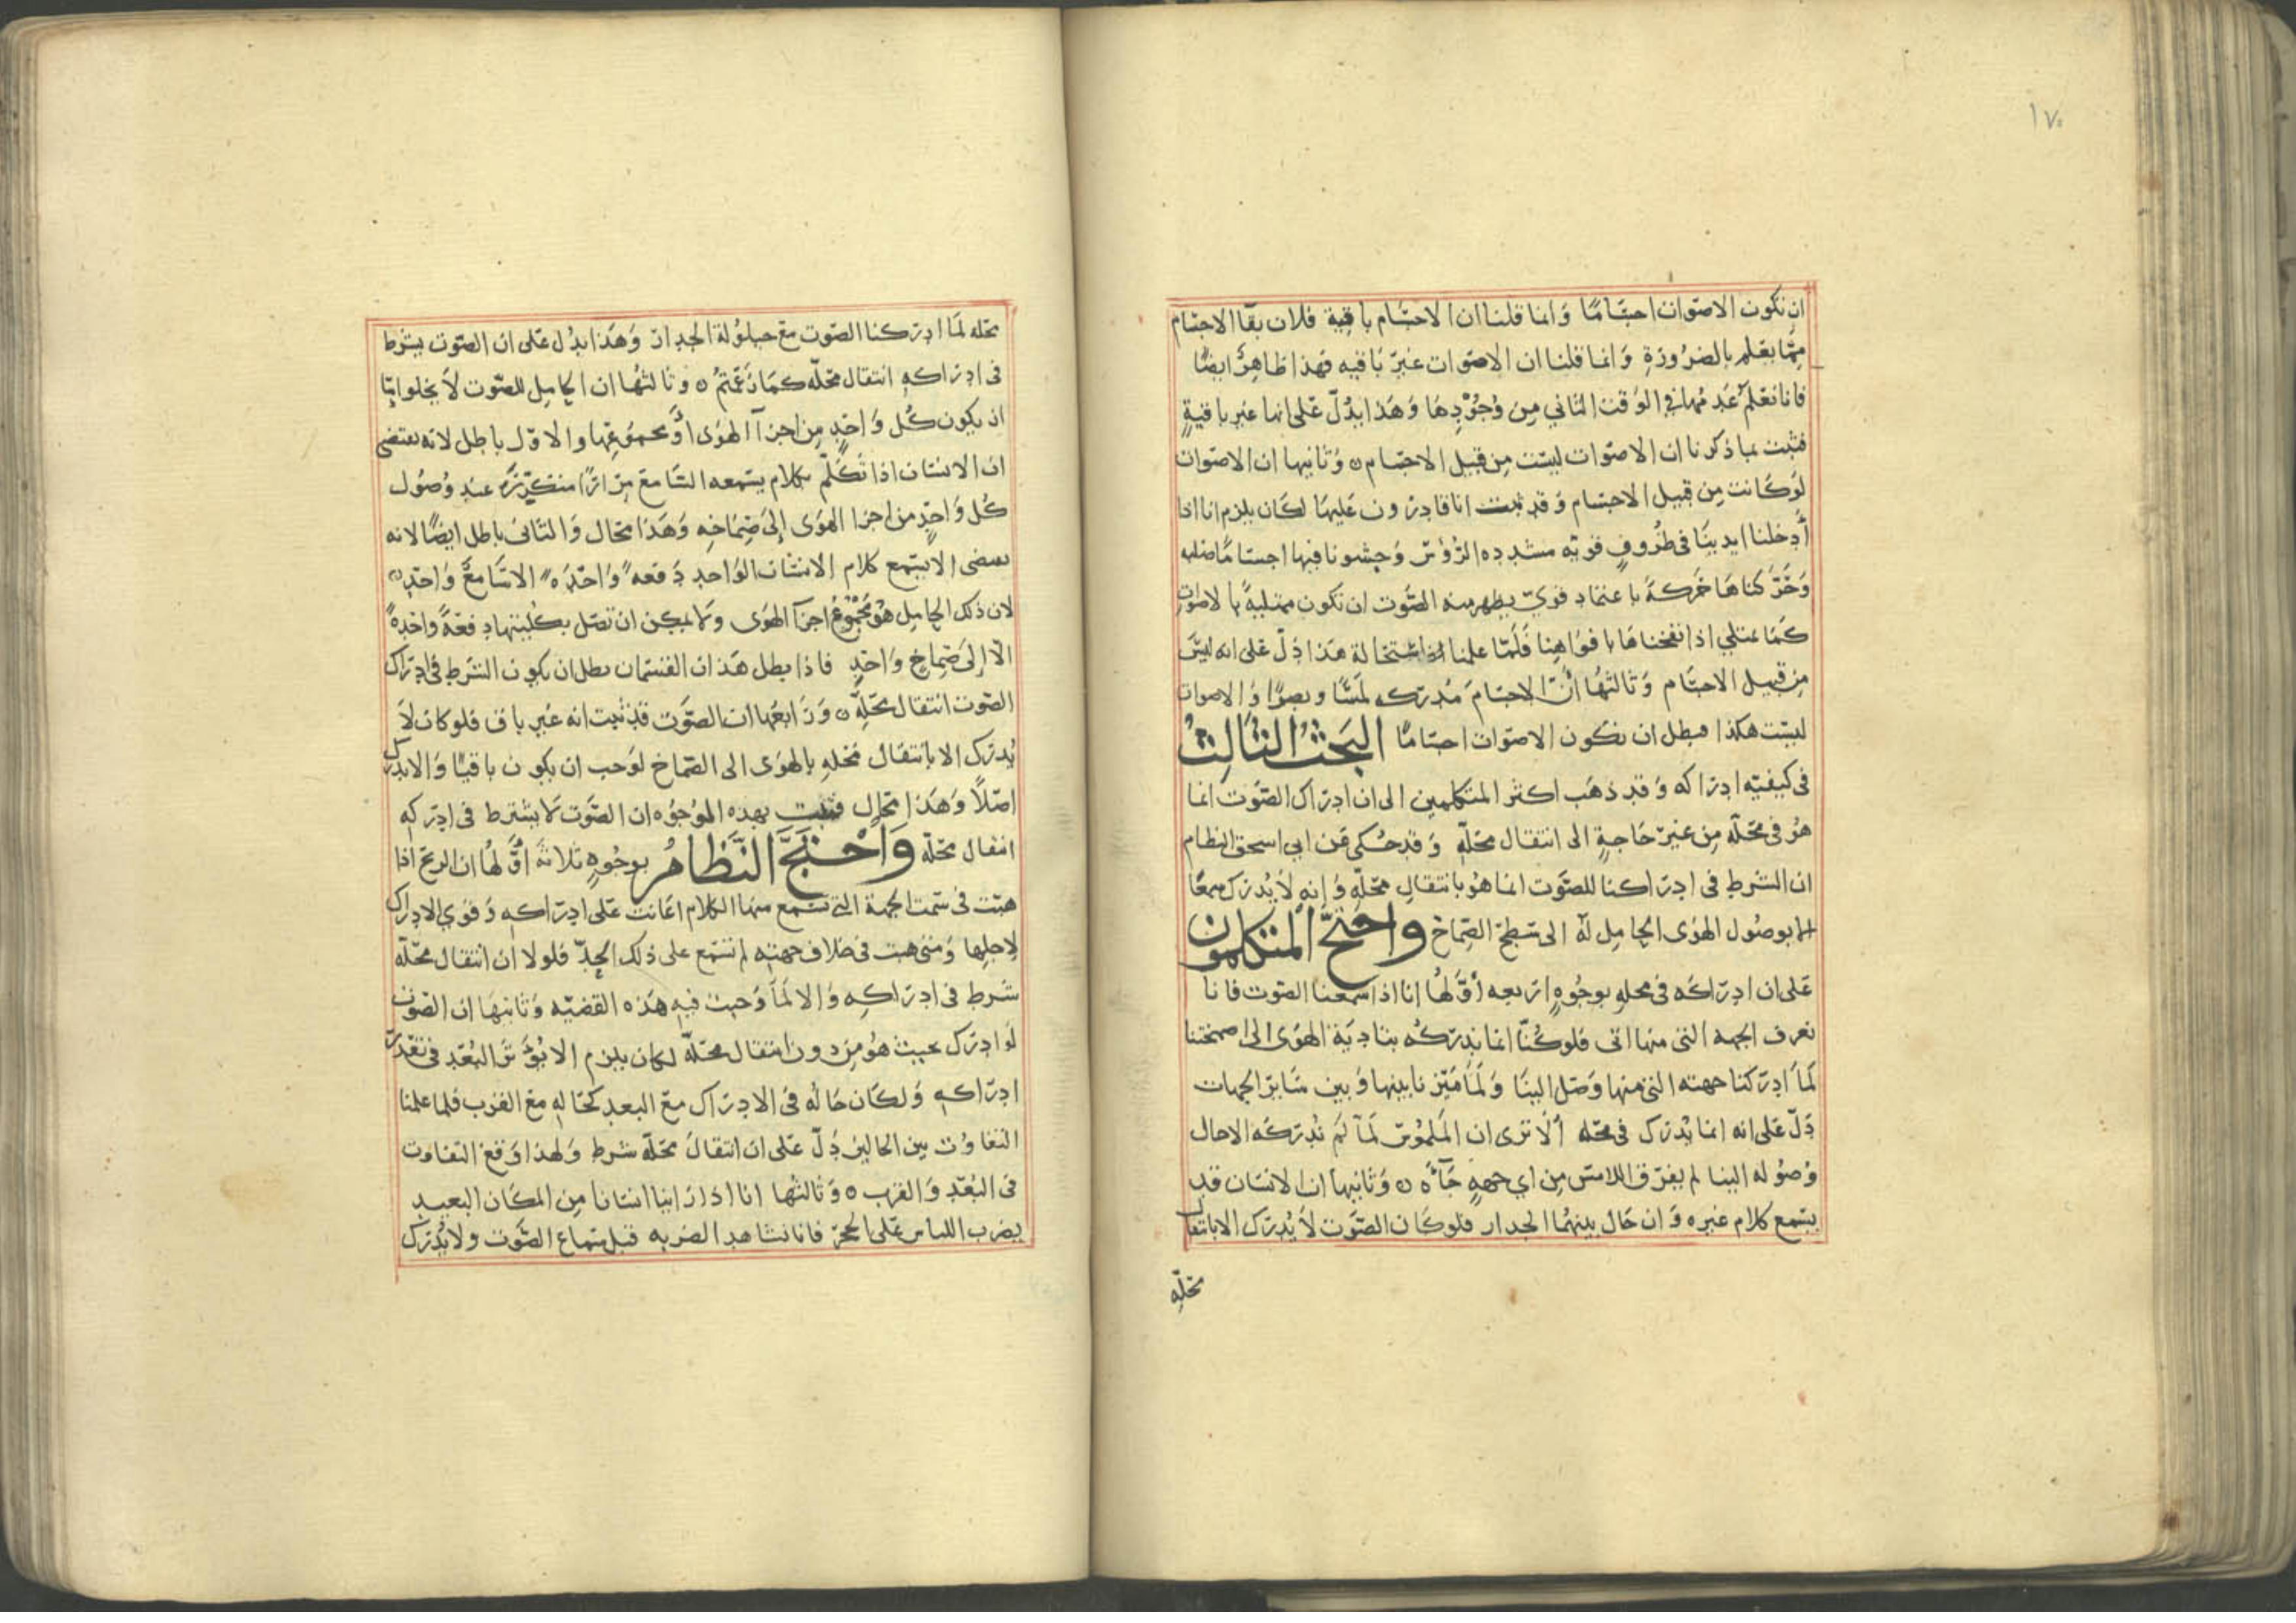 ١٧٠
ان تكون الاصوات اجسامًا وانما قلنا ان الاجسام باقية فلان بقا الاجسام
مما يعلم بالضرورة وانما قلنا ان الاصوات غير باقيه فهذا ظاهر ايضًا
فانا نعلم عدمها في الوقت الثاني من وجودها وهذا يدل على انها غير باقية
فثبت بما ذكرنا ان الاصوات ليست من قبيل الاجسام ٥ وثانيها ان الاصوات
لو كانت من قبيل الاجسام وقد ثبت انا قادرون عليها لكان يلزم انا اذا
أدخلنا ايدينا في ظروف قويه مشدده الرؤس وحشونا فيها اجسامًا صلبه
وحركناها حركة باعتماد قوي يظهر منه الصوت ان تكون ممتلية بالاصوات
كما تمتلي اذا نفخناها بافواهنا فلما علمنا استحالة هذا دل على انه ليس
من قبيل الاجسام وثالثها أن الاجسام مدركه لمسًا وبصرًا والاصوات
ليست هكذا فبطل ان تكون الاصوات اجسامًا البحث الثالث
في كيفية ادراكه وقد ذهب اكثر المتكلمين الى ان ادراك الصوت انما
هو في محله من غير حاجة الى انتقال محله وقد حكى عن ابي اسحق النظام
ان الشرط في ادراكنا للصوت انما هو بانتقال محله وانه لا يدرك سمعًا
الا بوصول الهوى الحامل له الى سطح الصماخ واحتج المتكلمون
على ان ادراكه في محله بوجوه اربعه أولها إنا اذا سمعنا الصوت فانا
نعرف الجهه التى منها اتى فلو كنا انما ندركه بتادية الهوى الى اصمختنا
لما ادركنا جهته التى منها وصل الينا ولما ميزنا بينها وبين سائر الجهات
دل على انه انما يدرك في محله ألا ترى ان الملموس لما لم ندركه الا حال
وصوله الينا لم يفرق اللامس من اي جهه جاه ٥ وثانيها ان الانسان قد
يسمع كلام غيره وان حال بينهما الجدار فلو كان الصوت لا يدرك الا بانتقال
محله
محله لما ادركنا الصوت مع حيلولة الجدار وهذا يدل على ان الصوت يشرط
فى ادراكه انتقال محله كما زعمتم ٥ وثالثها ان الحامل للصوت لا يخلو اما
ان يكون كل واحد من اجزآ الهوى او مجموعها والاول باطل لانه يقتضى
ان الانسان اذا تكلم بكلام يسمعه السامع مرارًا متكررة عند وصول
كل واحد من اجزا الهوى إلى صماخه وهذا محال والثانى باطل ايضًا لانه
يقتضى الا يسمع كلام الانسان الواحد دفعه واحده الا سامع واحد
لان ذلك الحامل هو مجموع اجزآ الهوى ولا يمكن ان تصل بكليتها دفعة واحدة
الا إلى صماخ واحد فاذا بطل هذان القسمان بطل ان يكون الشرط فى ادراك
الصوت انتقال محله ٥ ورابعها ان الصوت قد ثبت انه غير باق فلو كان لا
يدرك الا بانتقال محله بالهوى الى الصماخ لوجب ان يكون باقيًا والا يدرك
اصلًا وهذا محال فثبت بهذه الوجوه ان الصوت لا يشترط في ادركه
انتقال محله واحتج النظام بوجوه ثلاثة أولها ان الريح اذا
هبت في سمت الجهة التي نسمع منها الكلام اعانت على ادراكه وقوي الادراك
لاجلها ومتى هبت فى خلاف جهته لم نسمع على ذلك الحد فلولا ان انتقال محله
شرط في ادراكه والا لما وجبت فيه هذه القضيه وثانيها ان الصوت
لو ادرك بحيث هو من دون انتقال محله لكان يلزم الا يؤثر البعد فى تعذر
ادراكه ولكان حاله في الادراك مع البعد كحاله مع القرب فلما علمنا
التفاوت بين الحالين دل على ان انتقال محله شرط ولهذا وقع التفاوت
في البعد والقرب ٥ وثالثها انا اذا راينا انسانا من المكان البعيد
يضرب اللباس على الحجر فانا نشاهد الضربه قبل سماع الصوت ولا يدرك